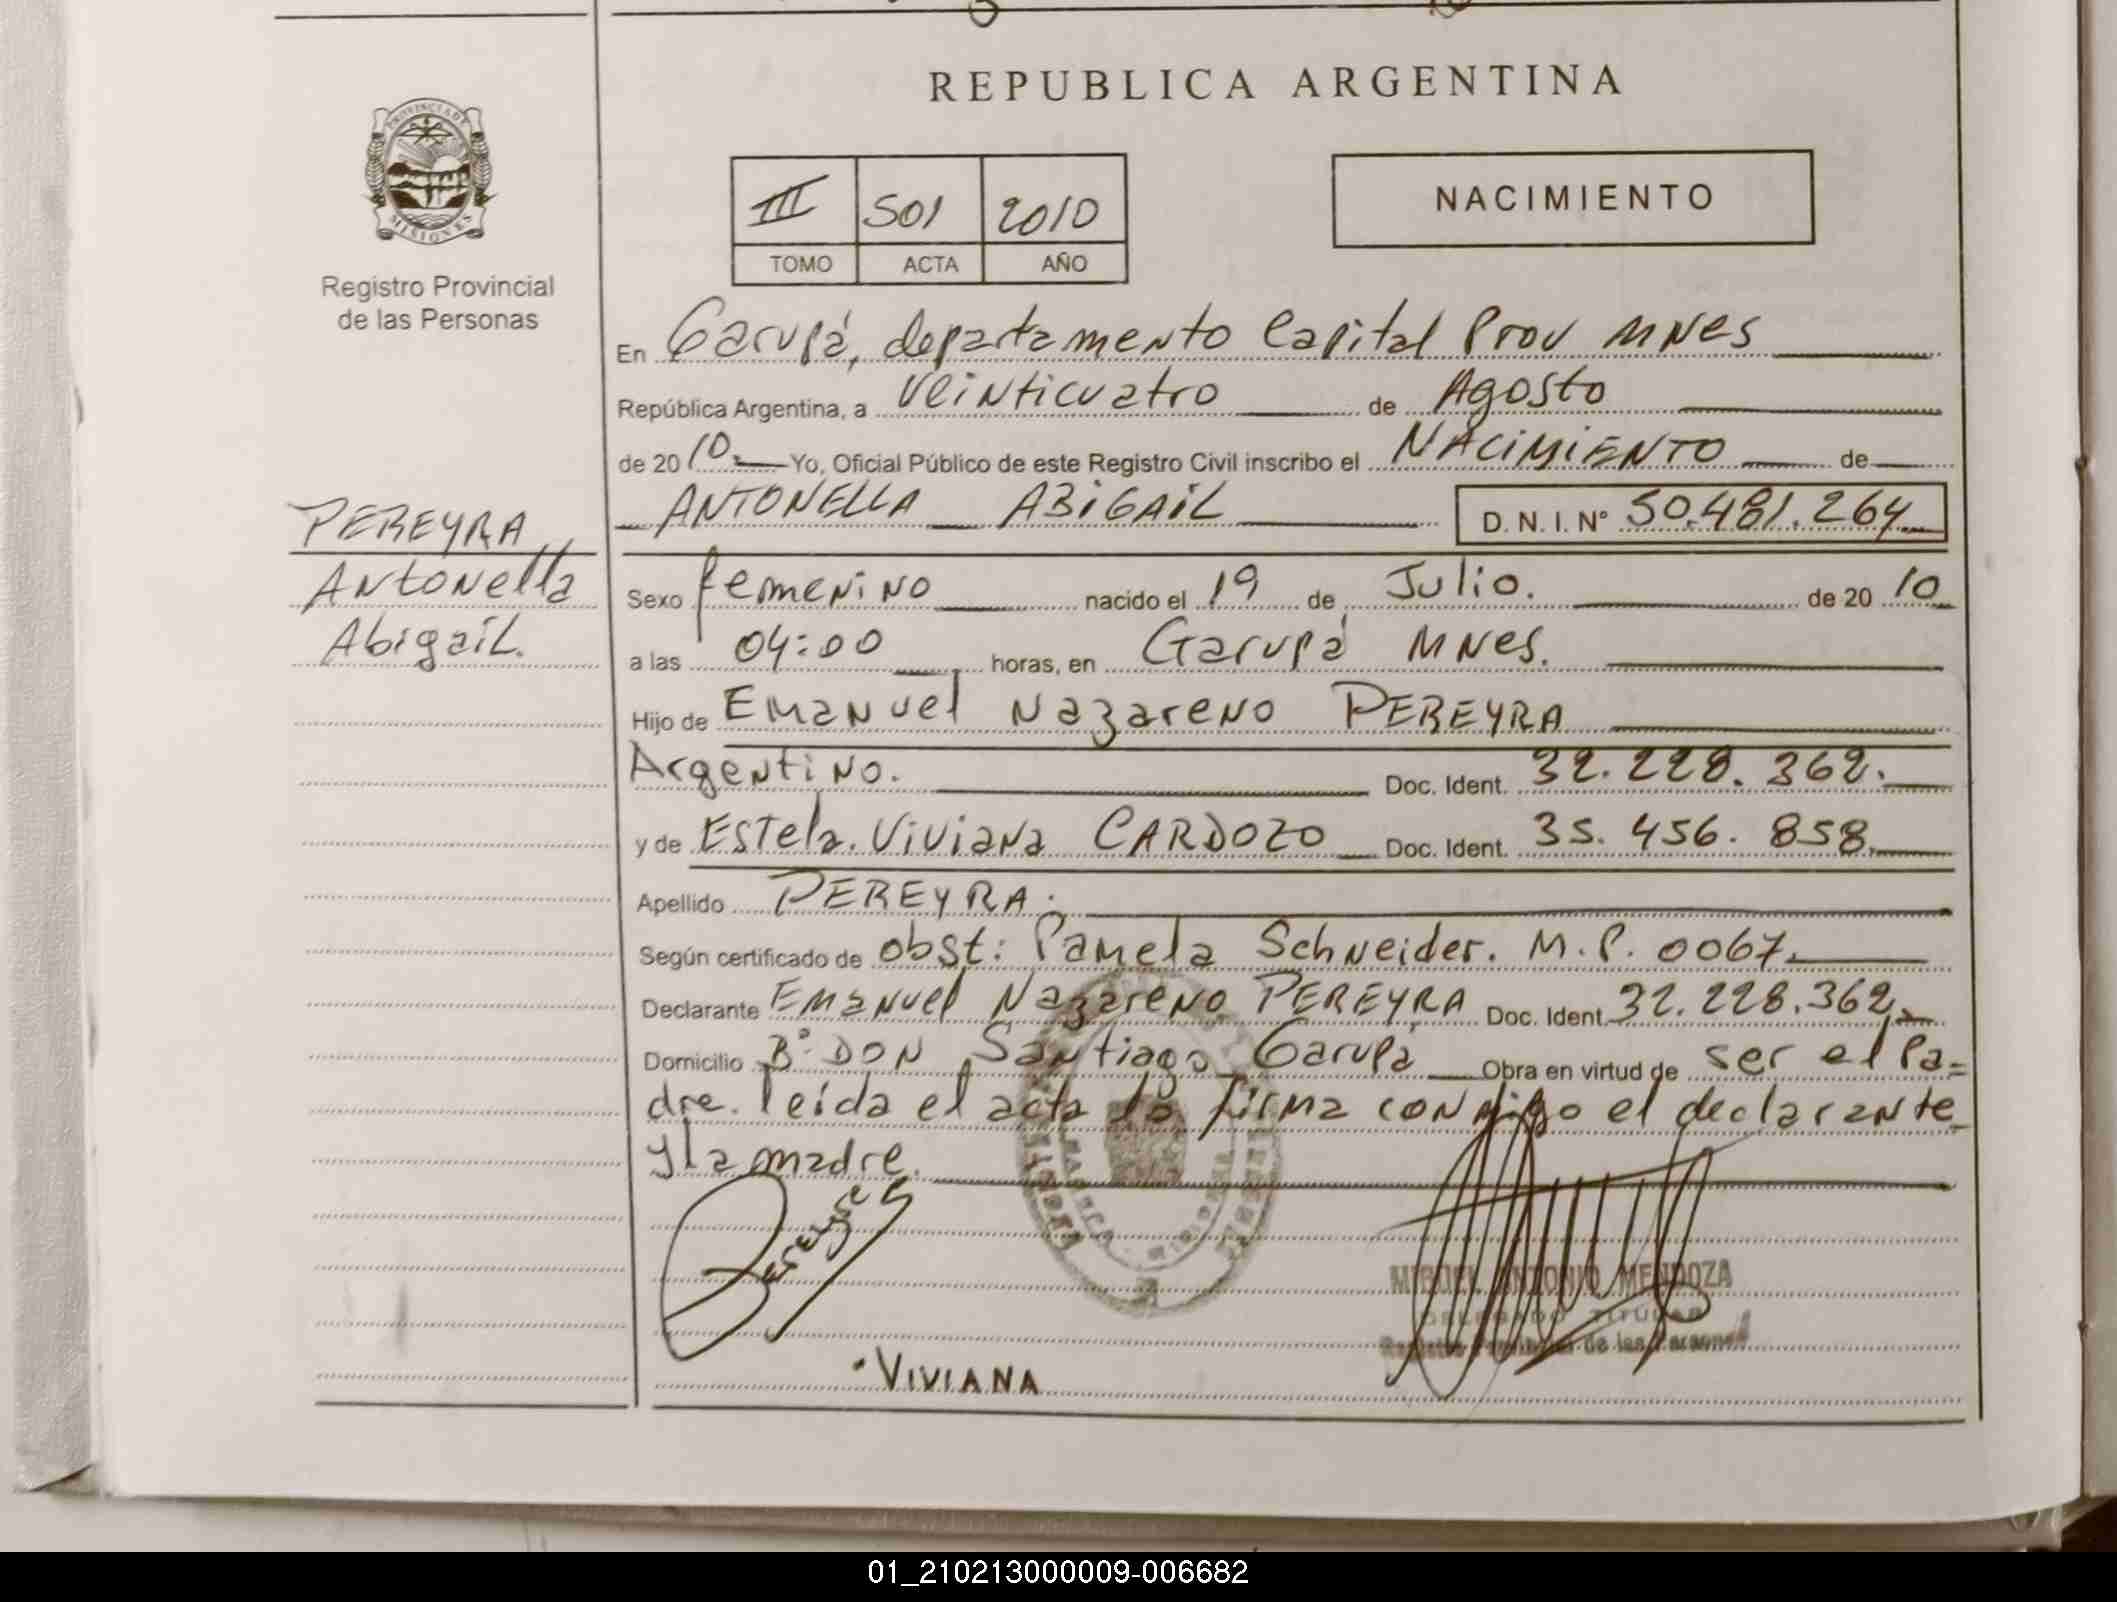 REPUBLICA ARGENTINA
PROVINCIA DE
MISIONES
Registro Provincial
de las Personas
III 501 2010
TOMO ACTA AÑO
NACIMIENTO
En Garupá, departamento Capital Prov MNes
República Argentina, a veinticuatro de Agosto
de 2010. Yo, Oficial Público de este Registro Civil inscribo el NACIMIENTO de
ANTONELLA ABIGAIL D. N. I. N° 50.481.264
PEREYRA
Antonella
Abigail.
Sexo femenino nacido el 19 de Julio. de 2010
a las 04:00 horas, en Garupá MNes.
Hijo de Emanuel Nazareno PEREYRA
Argentino. Doc. Ident. 32.228.362.
y de Estela Viviana CARDOZO Doc. Ident. 35.456.858.
Apellido PEREYRA.
Según certificado de obst: Pamela Schneider. M.P. 0067.
Declarante Emanuel Nazareno PEREYRA Doc. Ident. 32.228.362.
Domicilio B° DON Santiago Garupá Obra en virtud de ser el Pa=
dre. leida el acta la firma conmigo el declarante
y la madre.
MIGUEL ANTONIO MENDOZA
DELEGADO TITULAR
Registro Provincial de las Personas
VIVIANA
01_210213000009-006682